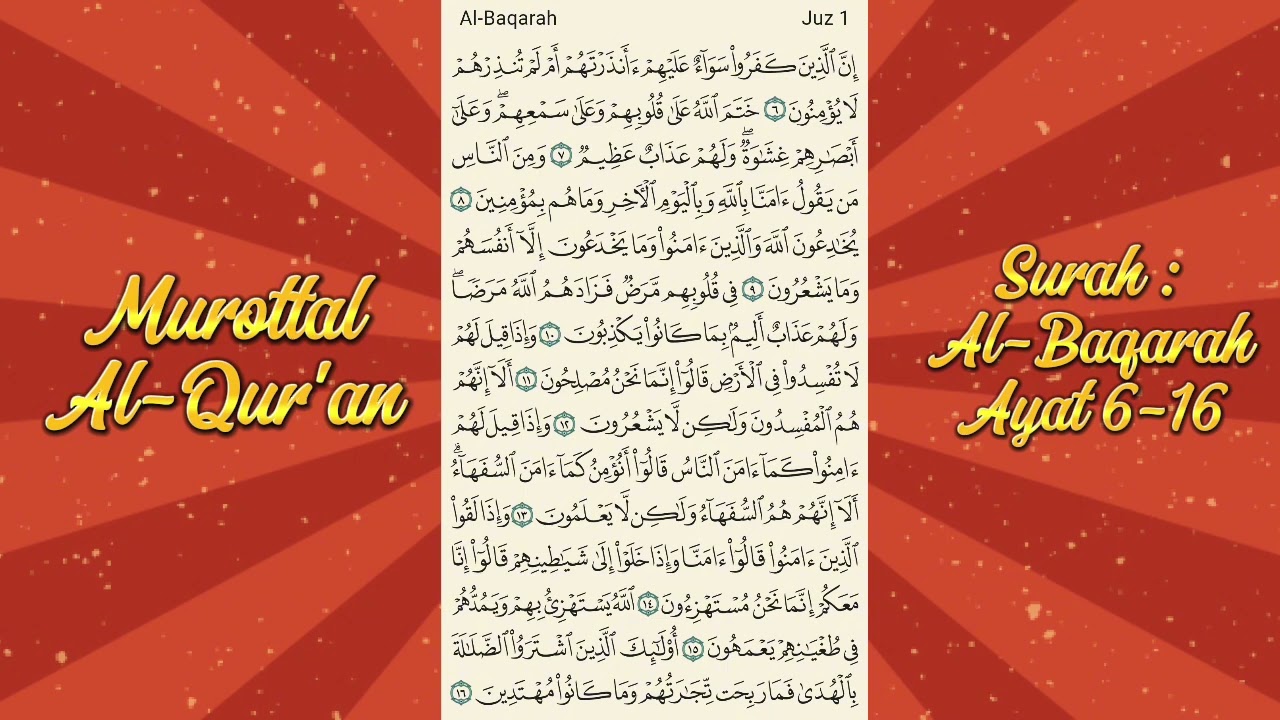 Al-Baqarah
Juz 1
إِنَّ ٱلَّذِينَ كَفَرُوا۟ سَوَآءٌ عَلَيْهِمْ ءَأَنذَرْتَهُمْ أَمْ لَمْ تُنذِرْهُمْ
لَا يُؤْمِنُونَ ٦ خَتَمَ ٱللَّهُ عَلَىٰ قُلُوبِهِمْ وَعَلَىٰ سَمْعِهِمْ ۖ وَعَلَىٰٓ
أَبْصَـٰرِهِمْ غِشَـٰوَةٌ ۖ وَلَهُمْ عَذَابٌ عَظِيمٌ ٧ وَمِنَ ٱلنَّاسِ
مَن يَقُولُ ءَامَنَّا بِٱللَّهِ وَبِٱلْيَوْمِ ٱلْـَٔاخِرِ وَمَا هُم بِمُؤْمِنِينَ ٨
يُخَـٰدِعُونَ ٱللَّهَ وَٱلَّذِينَ ءَامَنُوا۟ وَمَا يَخْدَعُونَ إِلَّآ أَنفُسَهُمْ
وَمَا يَشْعُرُونَ ٩ فِى قُلُوبِهِم مَّرَضٌ فَزَادَهُمُ ٱللَّهُ مَرَضًا ۖ
وَلَهُمْ عَذَابٌ أَلِيمٌۢ بِمَا كَانُوا۟ يَكْذِبُونَ ١٠ وَإِذَا قِيلَ لَهُمْ
لَا تُفْسِدُوا۟ فِى ٱلْأَرْضِ قَالُوٓا۟ إِنَّمَا نَحْنُ مُصْلِحُونَ ١١ أَلَآ إِنَّهُمْ
هُمُ ٱلْمُفْسِدُونَ وَلَـٰكِن لَّا يَشْعُرُونَ ١٢ وَإِذَا قِيلَ لَهُمْ
ءَامِنُوا۟ كَمَآ ءَامَنَ ٱلنَّاسُ قَالُوٓا۟ أَنُؤْمِنُ كَمَآ ءَامَنَ ٱلسُّفَهَآءُ ۗ
أَلَآ إِنَّهُمْ هُمُ ٱلسُّفَهَآءُ وَلَـٰكِن لَّا يَعْلَمُونَ ١٣ وَإِذَا لَقُوا۟
ٱلَّذِينَ ءَامَنُوا۟ قَالُوٓا۟ ءَامَنَّا وَإِذَا خَلَوْا۟ إِلَىٰ شَيَـٰطِينِهِمْ قَالُوٓا۟ إِنَّا
مَعَكُمْ إِنَّمَا نَحْنُ مُسْتَهْزِءُونَ ١٤ ٱللَّهُ يَسْتَهْزِئُ بِهِمْ وَيَمُدُّهُمْ
فِى طُغْيَـٰنِهِمْ يَعْمَهُونَ ١٥ أُو۟لَـٰٓئِكَ ٱلَّذِينَ ٱشْتَرَوُا۟ ٱلضَّلَـٰلَةَ
بِٱلْهُدَىٰ فَمَا رَبِحَت تِّجَـٰرَتُهُمْ وَمَا كَانُوا۟ مُهْتَدِينَ ١٦
Murottal
Al-Qur'an
Surah :
Al-Baqarah
Ayat 6-16